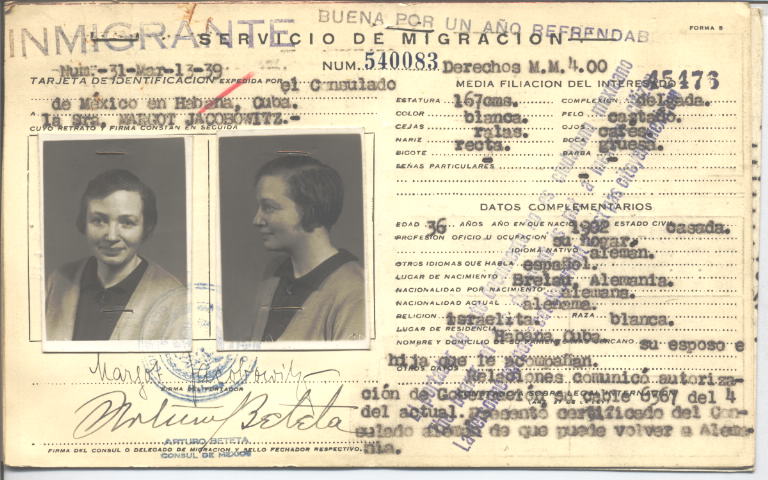 INMIGRANTE
BUENA POR UN AÑO REFRENDAB
FORMA 5
SERVICIO DE MIGRACION
Num.-31-Mar-13-39
NUM. 540083
Derechos M.M. 4.00
45476
TARJETA DE IDENTIFICACION EXPEDIDA POR el Consulado
de México en Habana, Cuba.
A la Sra. MARGOT JACOBOWITZ.-
CUYO RETRATO Y FIRMA CONSTAN EN SEGUIDA
Margot Jacobowitz
FIRMA DEL PORTADOR
Arturo Beteta
ARTURO BETETA
CONSUL DE MEXICO
FIRMA DEL CONSUL O DELEGADO DE MIGRACION Y SELLO FECHADOR RESPECTIVO.
MEDIA FILIACION DEL INTERESADO
ESTATURA 167cms. COMPLEXION delgada.
COLOR blanca. PELO castaño.
CEJAS ralas. OJOS cafes.
NARIZ recta. BOCA gruesa.
BIGOTE - BARBA -
SEÑAS PARTICULARES
-
DATOS COMPLEMENTARIOS
EDAD 36 AÑOS AÑO EN QUE NACIO 1902 ESTADO CIVIL casada.
PROFESION OFICIO U OCUPACION su hogar.
IDIOMA NATIVO aleman.
OTROS IDIOMAS QUE HABLA español.
LUGAR DE NACIMIENTO Brelau, Alemania.
NACIONALIDAD POR NACIMIENTO alemana.
NACIONALIDAD ACTUAL alemana.
RELIGION israelita. RAZA blanca.
LUGAR DE RESIDENCIA Habana, Cuba.
NOMBRE Y DOMICILIO DE su esposo e
hija que le acompañan.
OTROS DATOS Relaciones comunicó autoriza-
ción de Gobernación
del actual. Presentó certificado del Con-
sulado aleman de que puede volver a Alema-
nia.